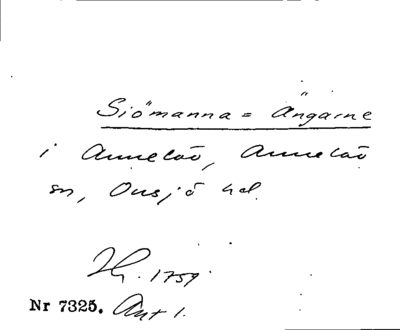 Siömanna = Ängarne
i Annelöv, Annelöv
sn, Onsjö hd.
1759.
Nr 7325. Akt 1.